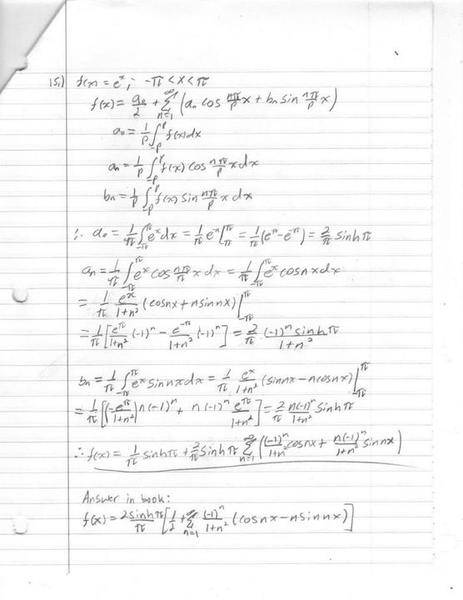 15.) f(x) = e^x; -π < x < π
f(x) = a₀/2 + ∑_{n=1}^{∞} (aₙ cos nπ/p x + bₙ sin nπ/p x)
a₀ = 1/p ∫_{-p}^{p} f(x) dx
aₙ = 1/p ∫_{-p}^{p} f(x) cos nπ/p x dx
bₙ = 1/p ∫_{-p}^{p} f(x) sin nπ/p x dx
∴ a₀ = 1/π ∫_{-π}^{π} e^x dx = 1/π e^x |_{-π}^{π} = 1/π (e^π - e^{-π}) = 2/π sinh π
aₙ = 1/π ∫_{-π}^{π} e^x cos nπ/π x dx = 1/π ∫_{-π}^{π} e^x cos nx dx
= 1/π e^x/(1+n²) (cos nx + n sin nx) |_{-π}^{π}
= 1/π [e^π/(1+n²) (-1)^n - e^{-π}/(1+n²) (-1)^n] = 2/π (-1)^n sinh π/(1+n²)
bₙ = 1/π ∫_{-π}^{π} e^x sin nx dx = 1/π e^x/(1+n²) (sin nx - n cos nx) |_{-π}^{π}
= 1/π [(-e^π/(1+n²)) n(-1)^n + n(-1)^n e^{-π}/(1+n²)] = 2/π n(-1)^n/(1+n²) sinh π
∴ f(x) = 1/π sinh π + 2/π sinh π ∑_{n=1}^{∞} ((-1)^n/(1+n²) cos nx + n(-1)^n/(1+n²) sin nx)
Answer in book:
f(x) = 2 sinh π/π [1/2 + ∑_{n=1}^{∞} (-1)^n/(1+n²) (cos nx - n sin nx)]